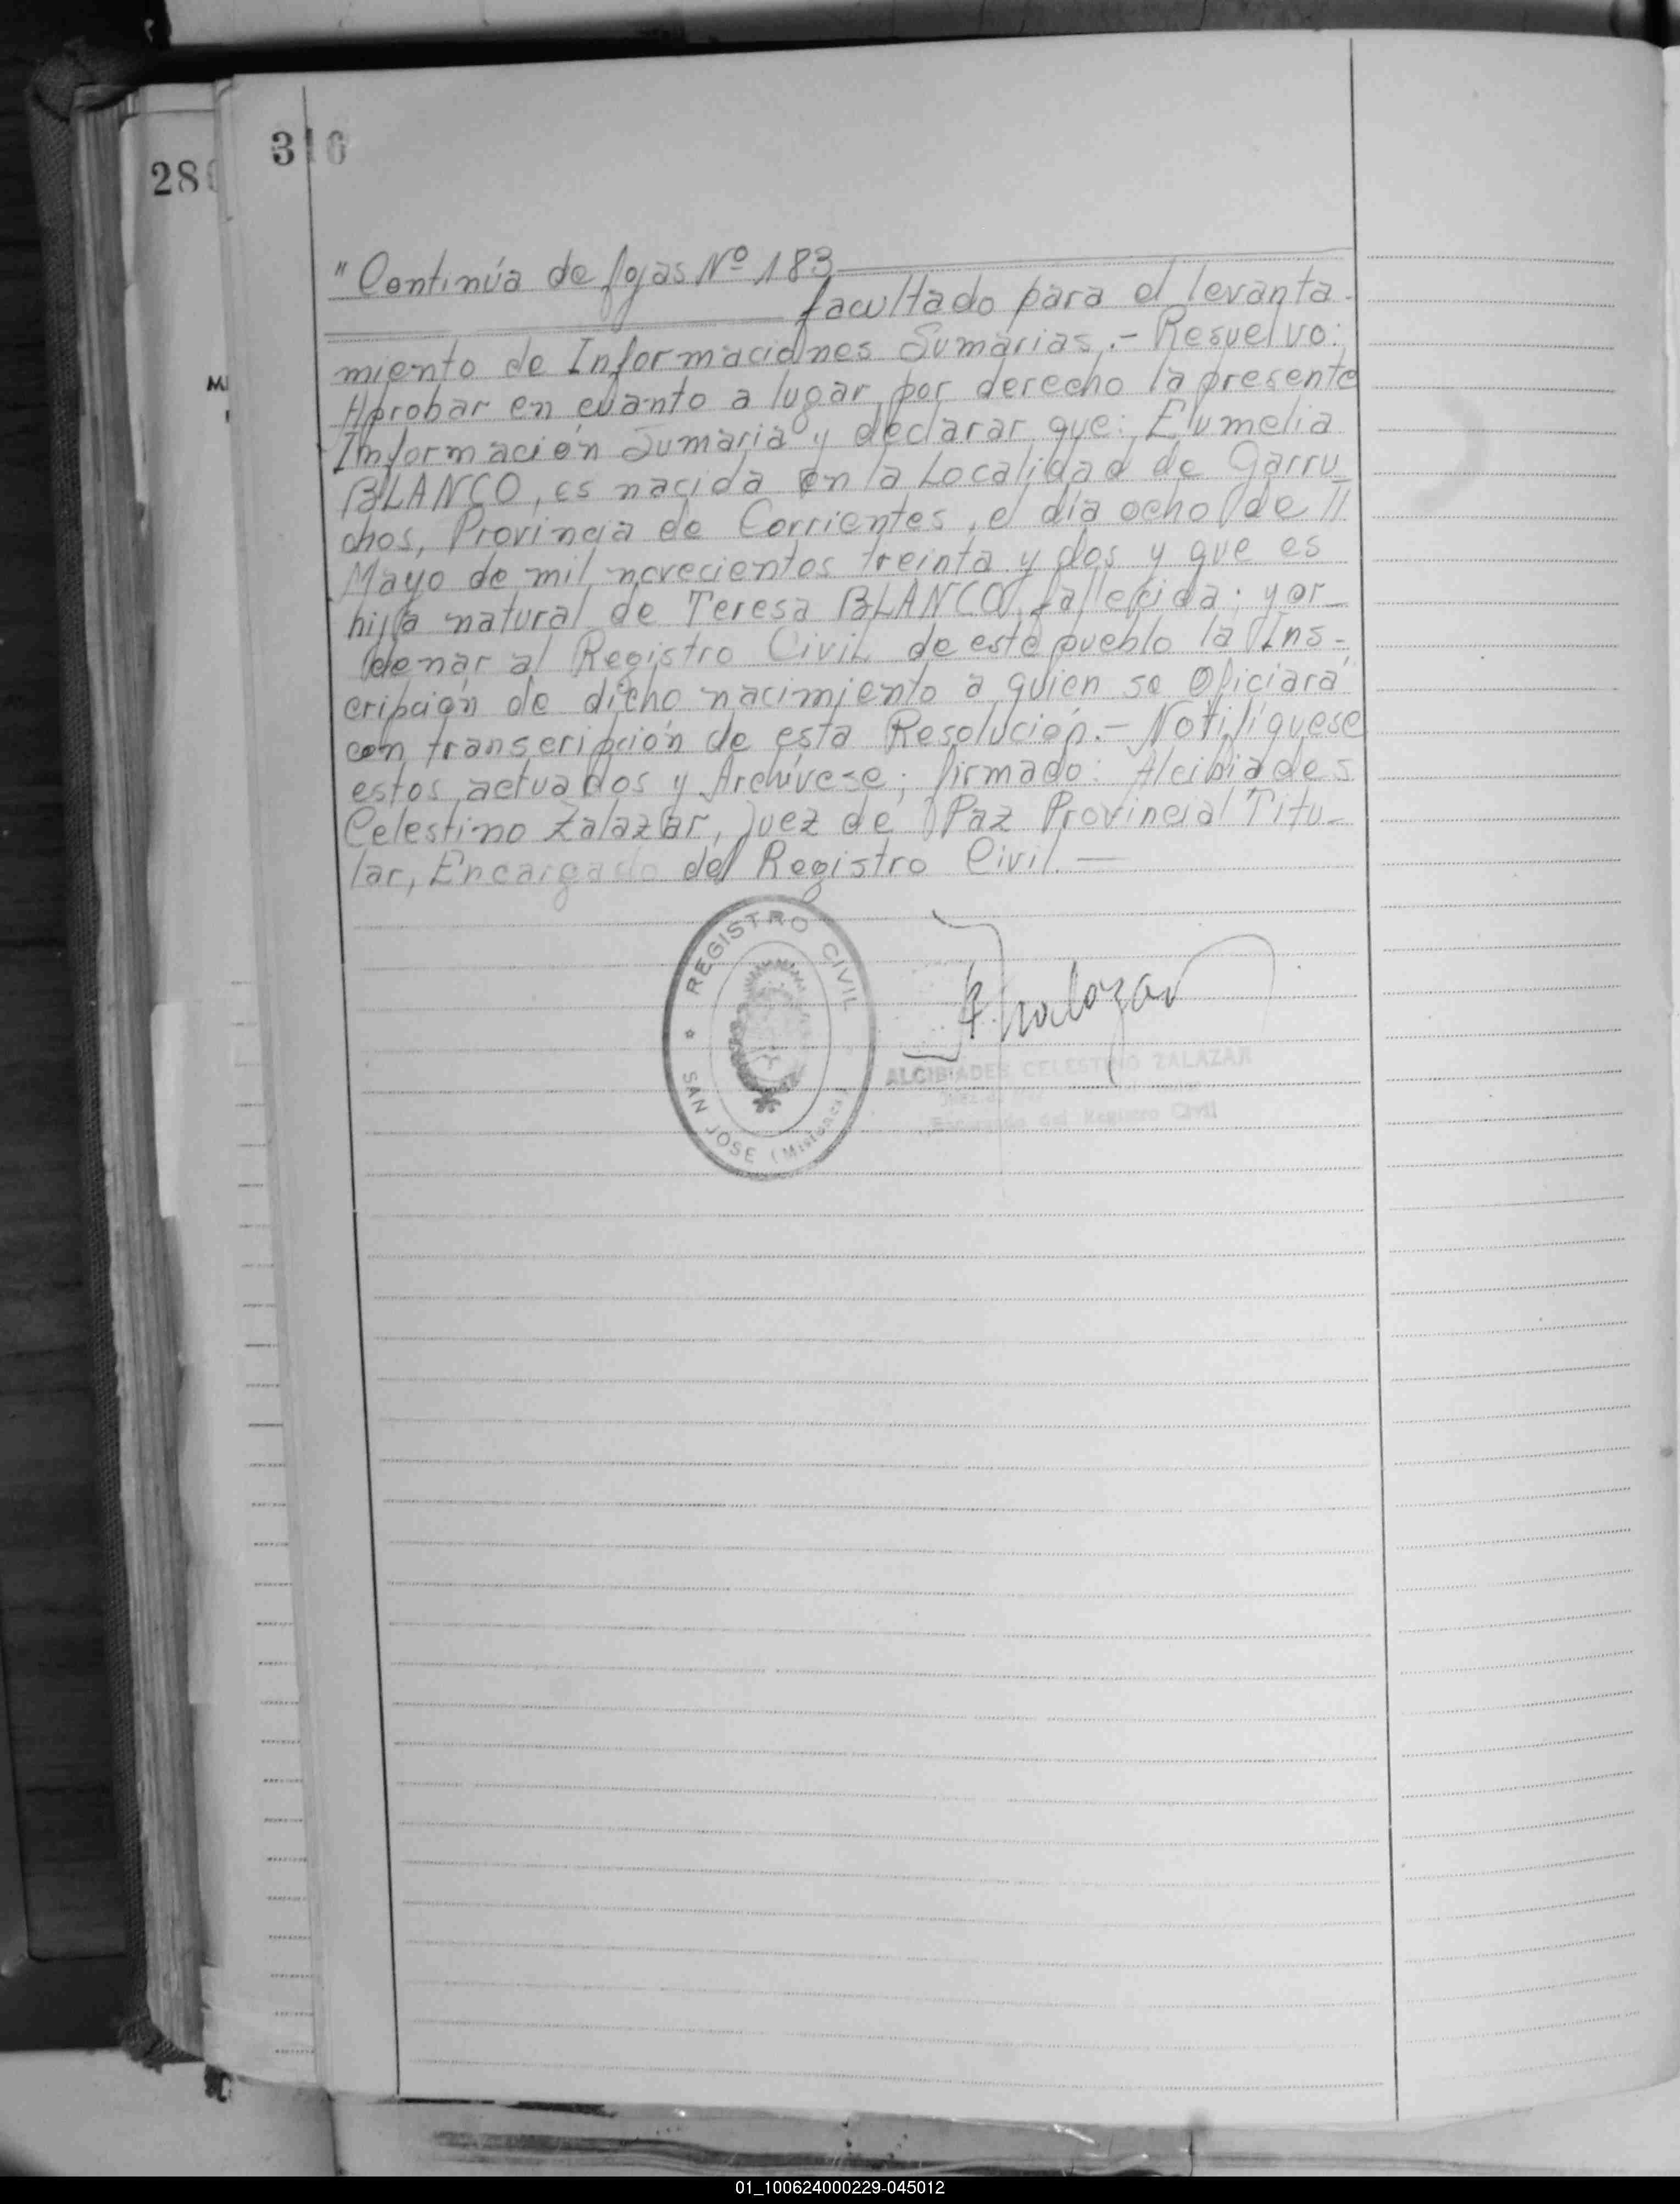 316
28
"Continúa de fojas Nº 183
facultado para el levanta-
miento de Informaciones Sumarias.- Resuelvo:
Aprobar en cuanto a lugar por derecho la presente
Información Sumaria y declarar que: Elumelia
BLANCO, es nacida en la Localidad de Garru-
chos, Provincia de Corrientes, el día ocho de //
Mayo de mil novecientos treinta y dos y que es
hija natural de Teresa BLANCO, fallecida; y or-
denar al Registro Civil de este pueblo la Ins-
cripción de dicho nacimiento a quien se Oficiará
con transcripción de esta Resolución.- Notifíquese
estos actuados y Archívese; firmado: Alcibiades
Celestino Zalazar, Juez de Paz Provincial Titu-
lar, Encargado del Registro Civil.-
REGISTRO CIVIL
SAN JOSE (Misiones)
AZalazar
ALCIBIADES CELESTINO ZALAZAR
Encargado del Registro Civil
01_100624000229-045012